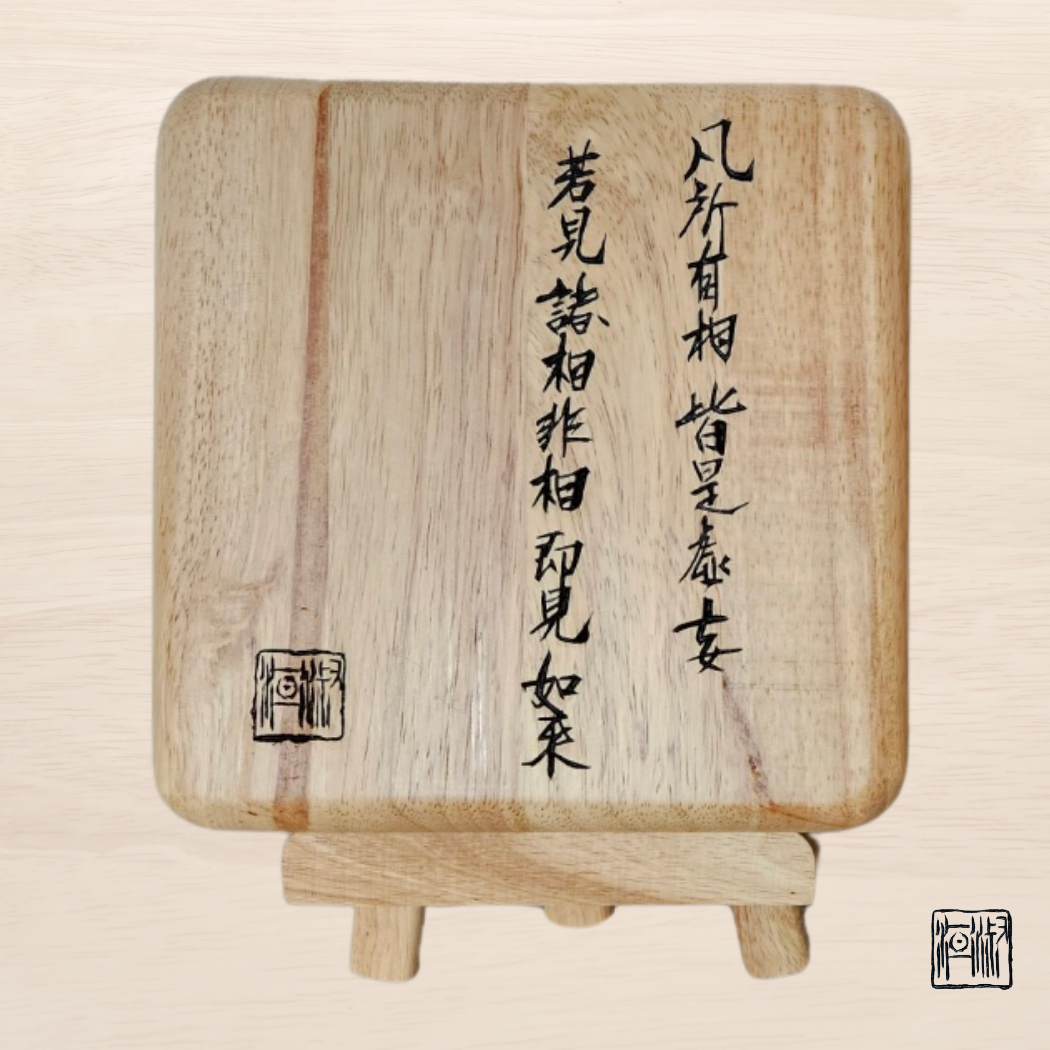 凡所有相皆是虛妄
若見諸相非相即見如來